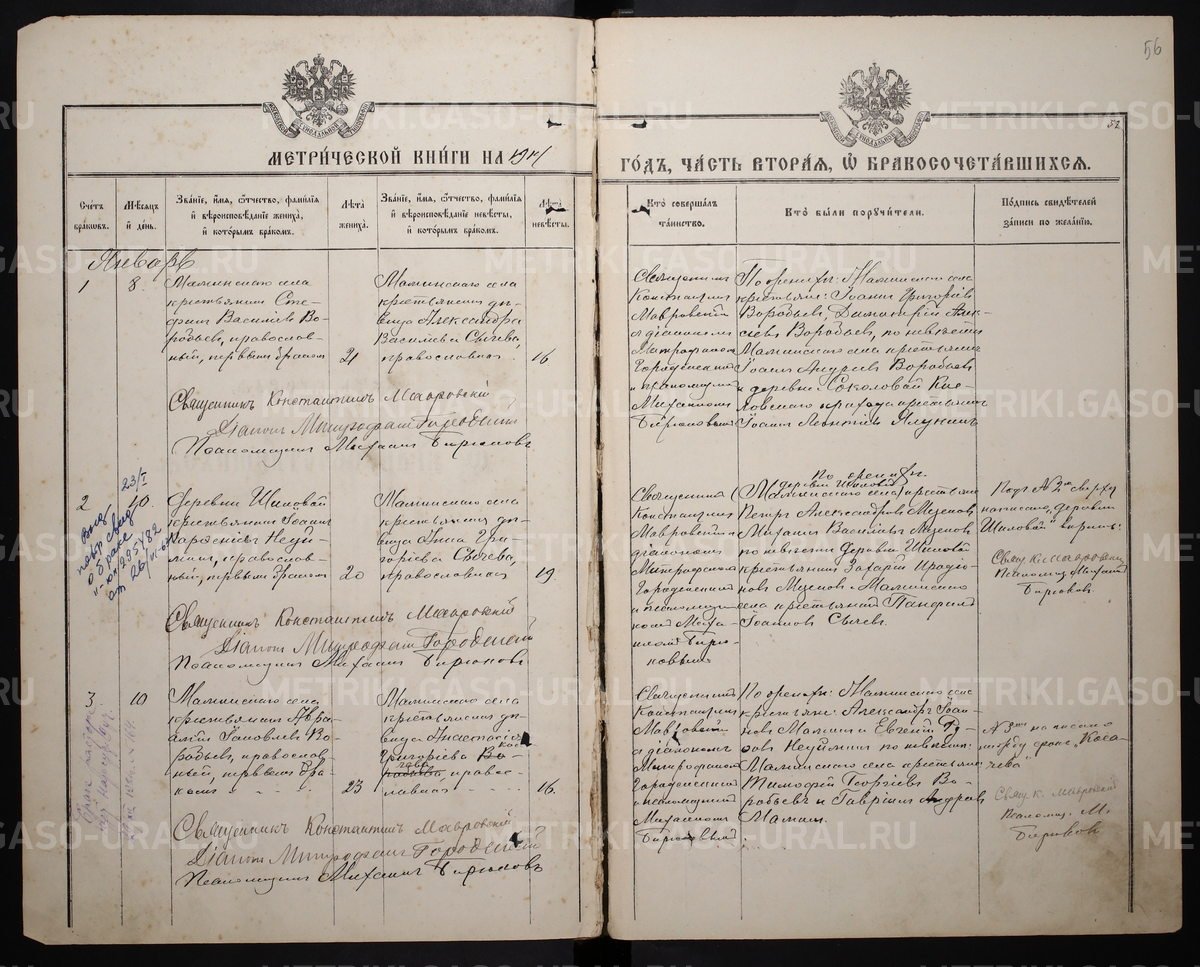 56
52
МЕТРИ́ЧЕСКОЙ КНИ́ГИ НА
ГО́ДЪ, ЧА́СТЬ ВТОРА́Я, Ѡ БРАКОСОЧЕТА́ВШИХСЯ.
Сче́тъ бра́ковъ.
Мѣ́сяцъ и҆ де́нь.
Зва́ніе, и҆́мя, ѻ҆́тчество, фами́лія и҆ вѣроисповѣ́даніе жениха̀, и҆ кото́рымъ бра́комъ.
Лѣ́та жениха̀.
Зва́ніе, и҆́мя, ѻ҆́тчество, фами́лія и҆ вѣроисповѣ́даніе невѣ́сты, и҆ кото́рымъ бра́комъ.
Лѣ́та невѣ́сты.
Кто̀ соверша́лъ та́инство.
Кто̀ бы́ли поручи́тели.
По́дпись свидѣ́телей за́писи по жела́нію.
Январь
1
8
Маминскаго села
крестьянинъ Сте-
фанъ Василіевъ Во-
робьевъ, православ-
ный, первымъ бракомъ
21
Маминскаго села
крестьянская дѣ-
вица Александра
Василіева Сычева,
православная
16
Священникъ
Константинъ
Мавровскій
и діаконъ
Митрофанъ
Городенскій
и псаломщикъ
Михаиломъ
Бирюковымъ
По женихѣ: Маминскаго села
крестьяне: Іоаннъ Григоріевъ
Воробьевъ, Димитрій Алек-
сѣевъ Воробьевъ, по невѣстѣ
Маминскаго села крестьянинъ
Іоаннъ Андреевъ Воробьевъ
и деревни Соколовой
крестьянинъ
Іоаннъ Леонтіевъ Ялунинъ
Священникъ Константинъ Мавровскій
Діаконъ Митрофанъ Городенскій
Псаломщикъ Михаилъ Бирюковъ
2
23/I
10
Деревни Шиловой
крестьянинъ Іоаннъ
Неуй-
минъ, православ-
ный, первымъ бракомъ
20
Маминскаго села
крестьянская дѣ-
вица Анна Гри-
горіева Сычева,
православная
19
Священникъ
Константинъ
Мавровскій и
діаконъ
Митрофанъ
Городенскій
и псаломщи-
комъ Миха-
иломъ Бирю-
ковымъ
По женихѣ:
деревни Шиловой
Маминскаго села крестьяне
Петръ Александровъ Мезеновъ
Михаилъ Василіевъ Мезеновъ
по невѣстѣ деревни Шиловой
крестьянинъ Захарій
Мезеновъ и Маминскаго
села крестьянинъ Панфилъ
Іоанновъ Сычевъ.
Подъ №2мъ сверху
написано „деревни
Шиловой" вѣрно:
Свящ. К. Мавровскій
Псаломщ. Михаилъ
Бирюковъ.
Священникъ Константинъ Мавровскій
Діаконъ Митрофанъ Городенскій
Псаломщикъ Михаилъ Бирюковъ
3
10
Маминскаго села
крестьянинъ Авра-
амій Іаковлевъ Во-
робьевъ, православ-
ный, первымъ бра-
комъ
23
Маминскаго села
крестьянская дѣ-
вица Анастасія
Григоріева Во-
Коса-
чева
православная
16.
Священникъ
Константинъ
Мавровскій
и діаконъ
Митрофанъ
Городенскій
и псаломщикъ
Михаиломъ
Бирюковымъ
По женихѣ: Маминскаго села
крестьяне: Александръ Іоан-
новъ Маминъ и Евгеній
Неуйминъ по невѣстѣ:
Маминскаго села крестьяне
Тимофей Георгіевъ Во-
робьевъ и Гавріилъ Андреевъ
Маминъ.
№3мъ написано
между строкъ „Коса-
чева"
Свящ. К. Мавровскій
Псаломщ. М.
Бирюковъ
Священникъ Константинъ Мавровскій
Діаконъ Митрофанъ Городенскій
Псаломщикъ Михаилъ Бирюковъ
METRIKI.GASO-URAL.RU